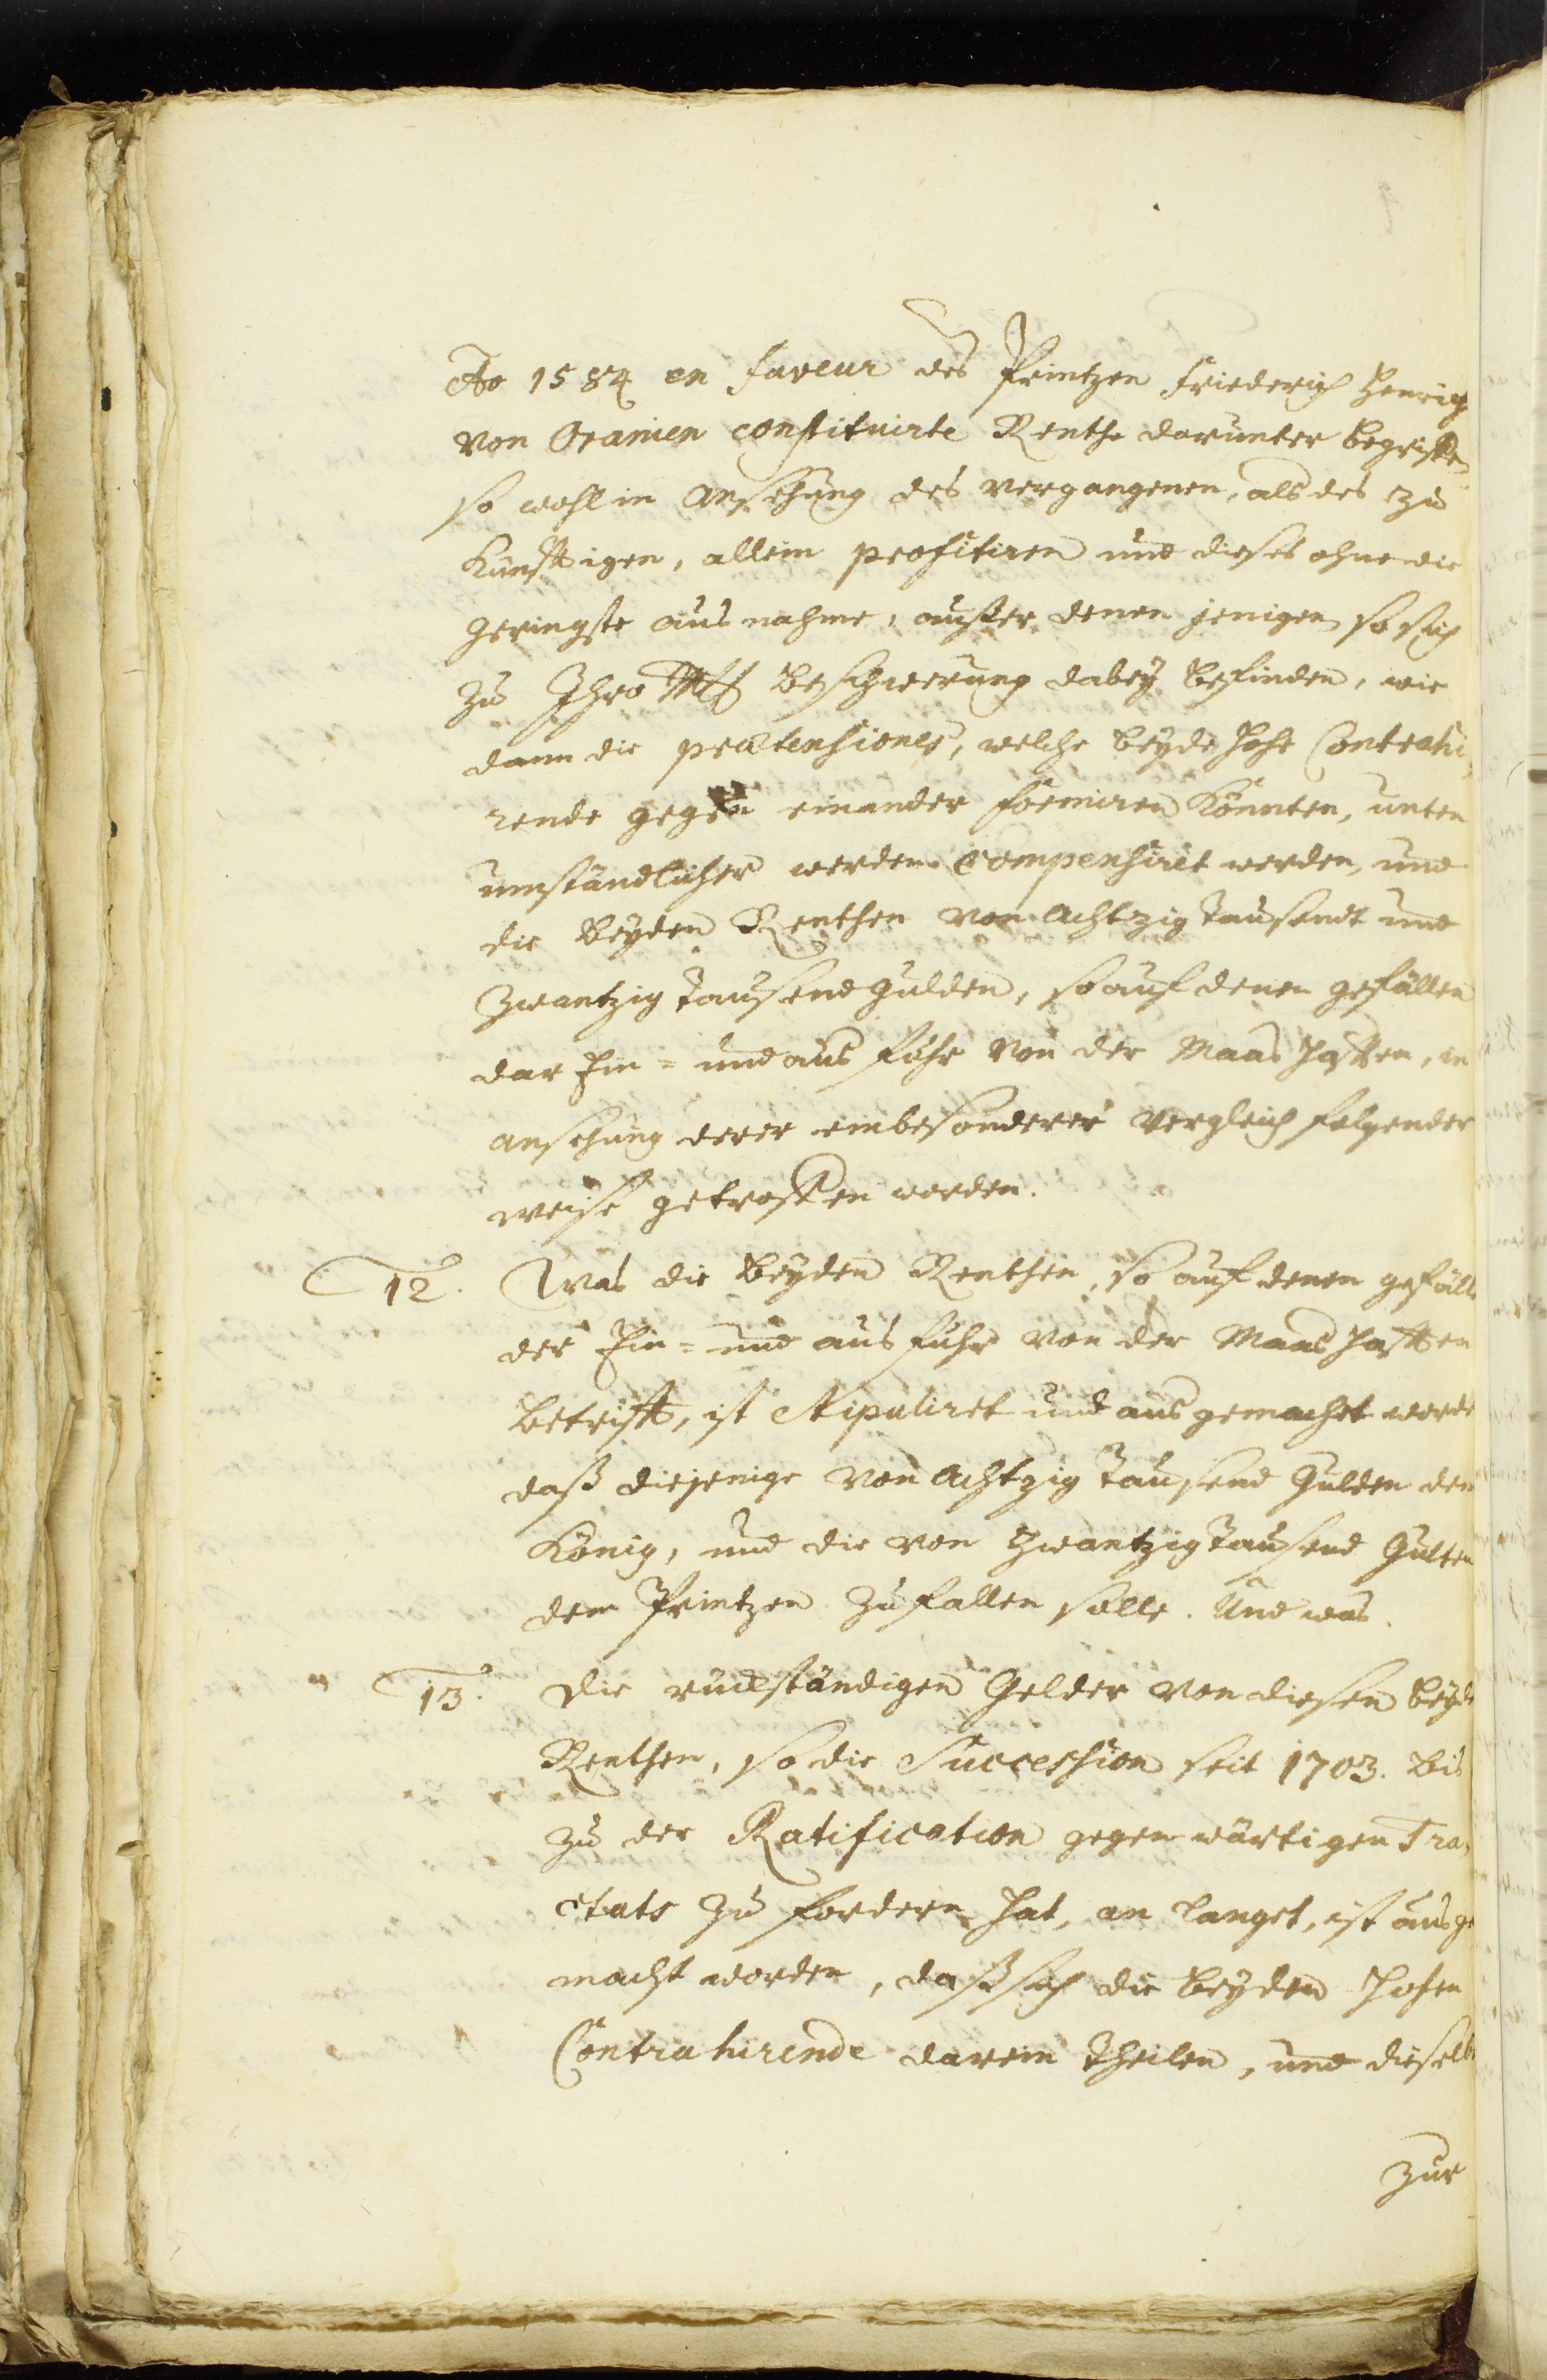 Ao 1584 en faveur des Printzen Friederich Henrich
von Oranien constituirte Renthe darunter begriffen
so wohl in Ansehung des vergangenen, als des zu
künfftigen, allein profitiren und dieses ohne die
geringste ausnahme, ausser denen jenigen so sich
zu Ihro Mtt beschwerung dabey befinden, wie
dann die prætensiones, welche beyde hohe Contrahi
rende gegen einander formiren könnten, unten
umständlicher werden compensiret werden, und
die beyden Renthen von Achtzig Tausendt und
zwantzig Tausend Gulden, so auf denen gefällen
der Ein= und aus fuhr von der Maas hafften, in
ansehung derer ein besonderer Vergleich folgender
weise getroffen worden.
12. Was die beyden Renthen, so auf denen gefälle
der Ein= und aus fuhr von der Maas hafften
betrifft, ist stipuliret und aus gemachet worde
daß diejenige von Achtzig Tausend Gulden dem
König, und die von zwantzig Tausend Gulten
dem Printzen zufallen solle. Und was
13. die rückständigen Gelder von diesen beyde
Renthen, so die Succession seit 1703. bis
zu der Ratification gegenwärtigen Tra,
ctats zu fordern hat, an langet, ist ausge
macht worden, daß sich die beyden hohen
Contrahirende darein theilen, und dieselbe
zur